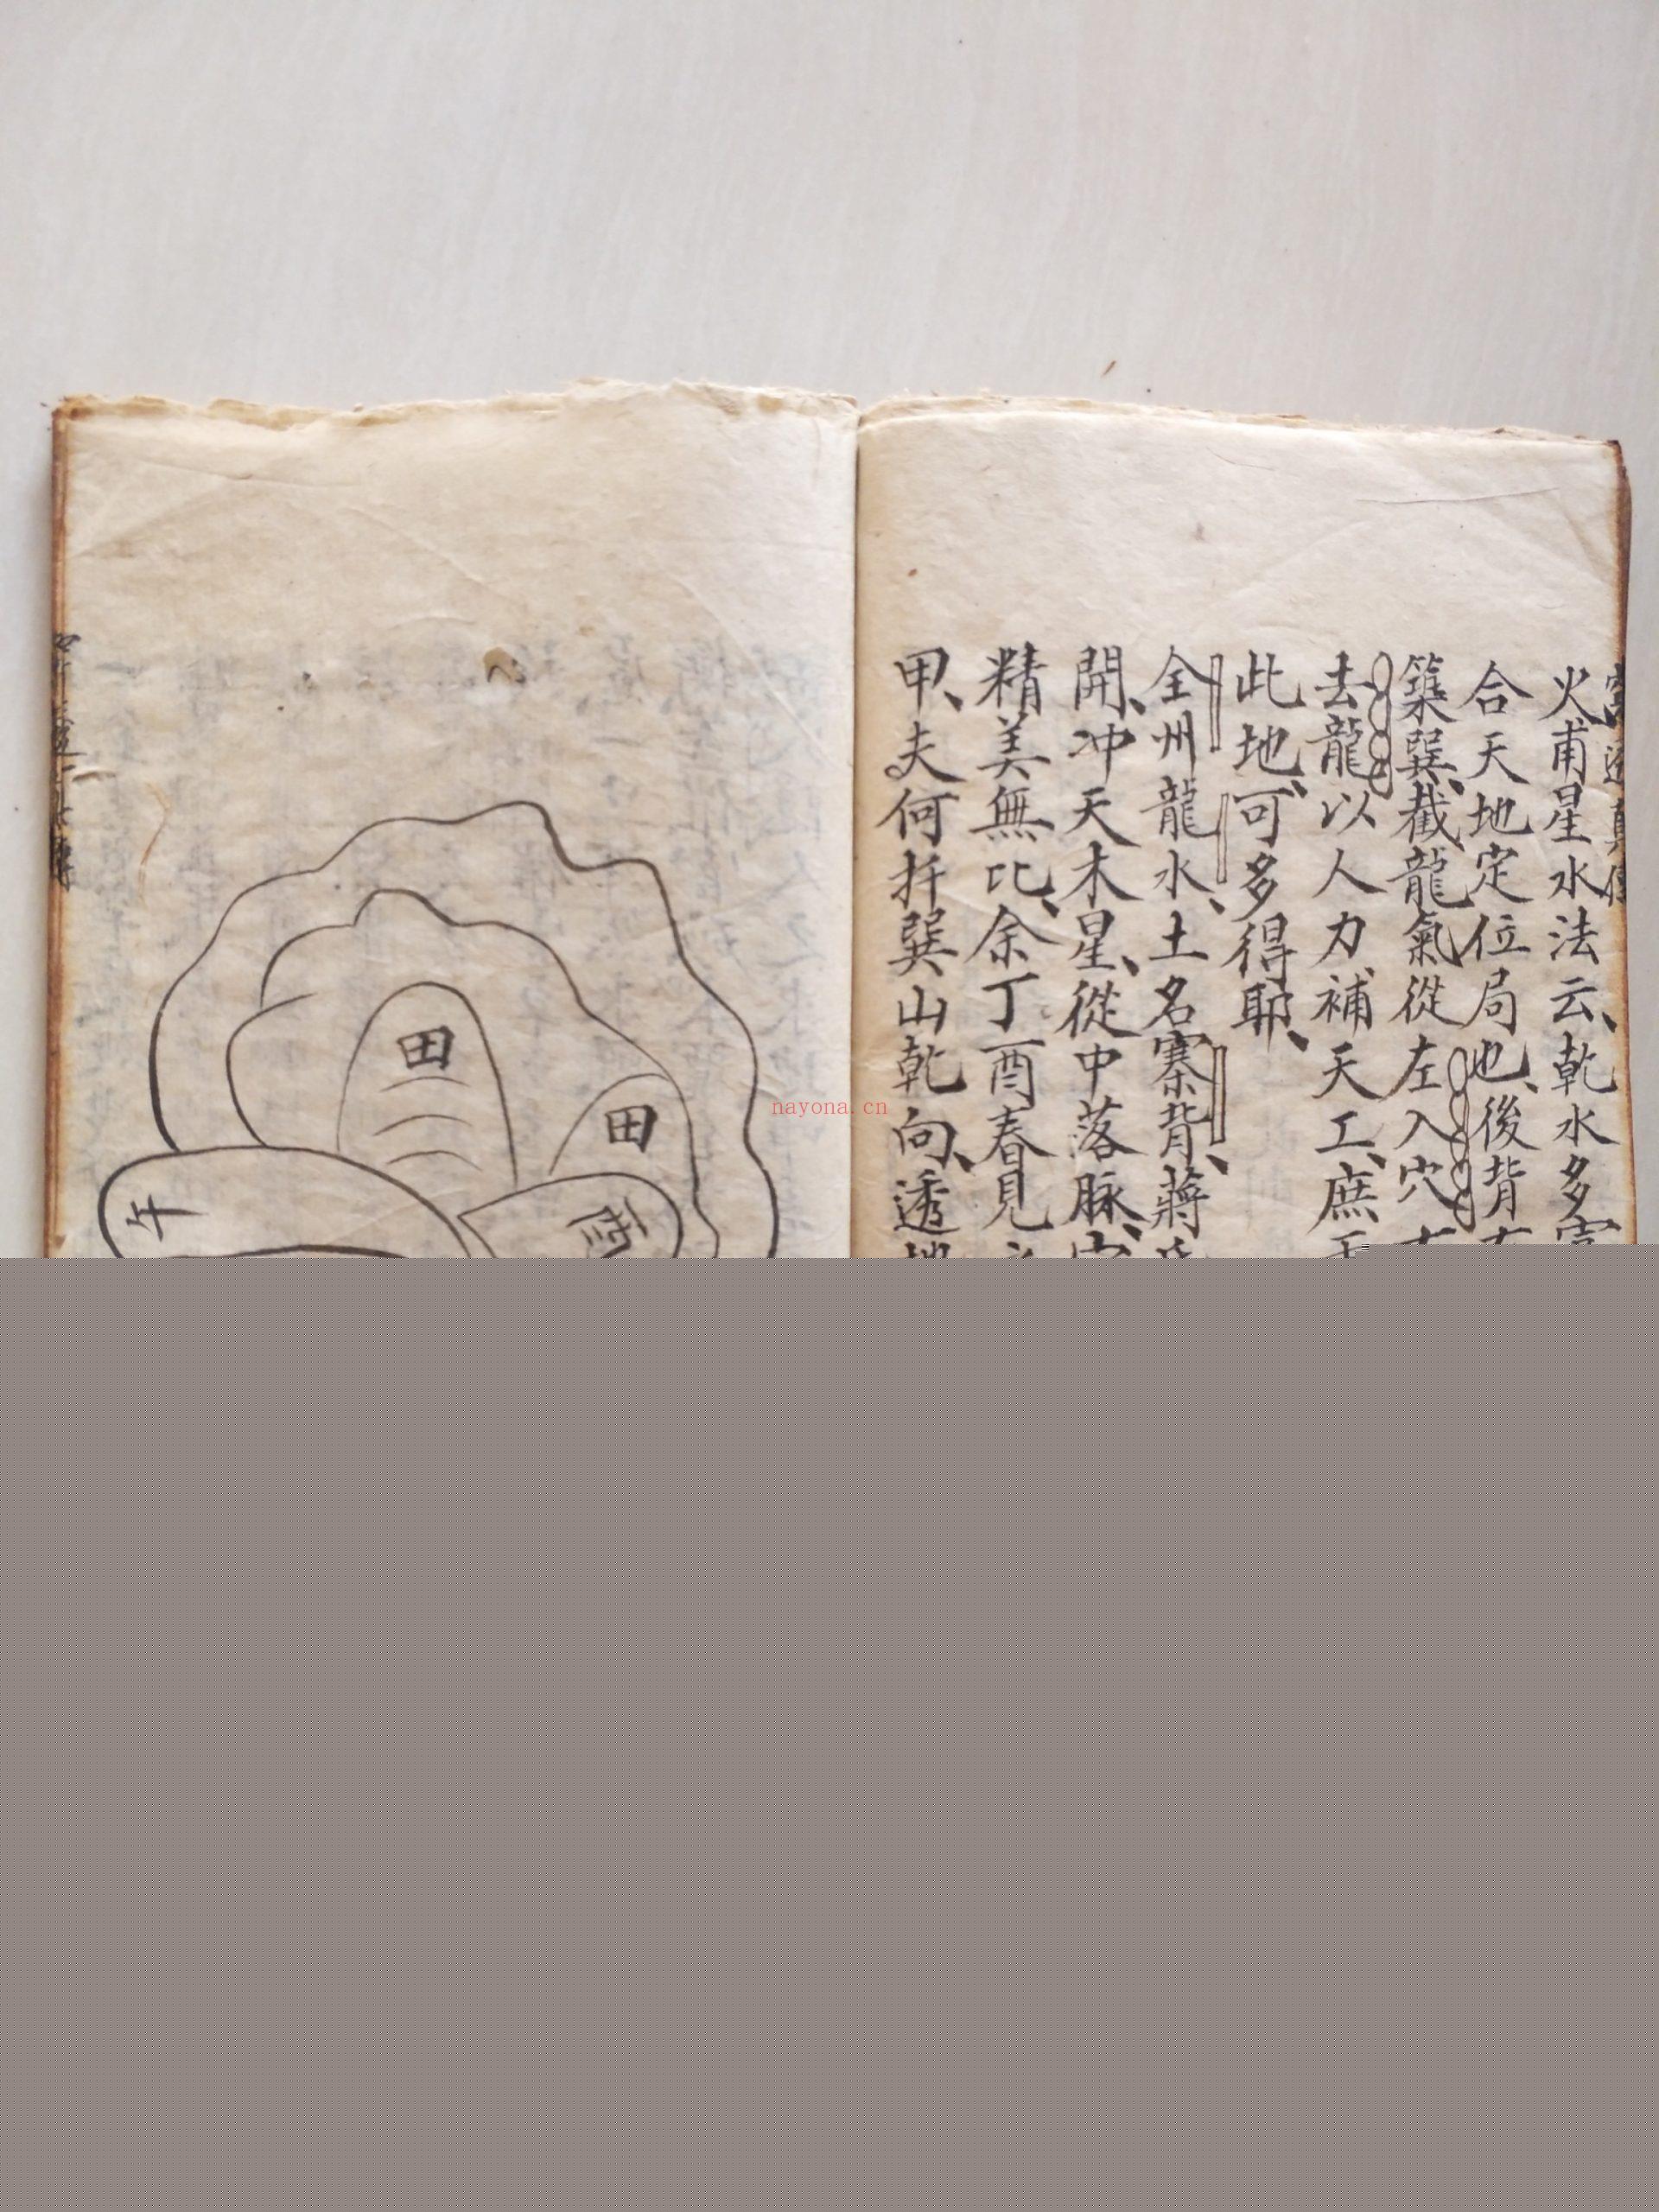 火甫星水法云、乾水多
合天地定位局也、後背
築巽、截龍氣從左入穴
去龍以人力補天工、庶
此地、可多得耶、
全州龍水、土名寨背、蔣
開、冲天木星、從中落脉、
精美無比、余丁酉春見
甲、夫何扦巽山乾向、透
田
田
午
酉
nayona.cn